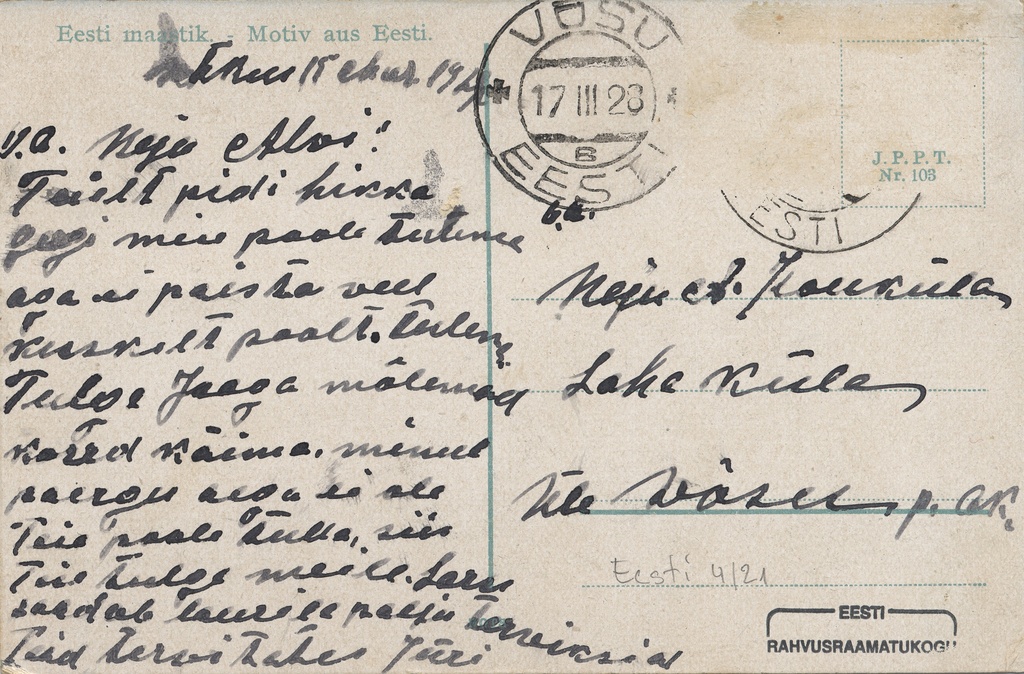 Eesti maastik. - Motiv aus Eesti.
V.a. Neju Alvi!
Teilt pidi hirka
geegi meie poole tulema
aga ei paista veel
kusskilt poolt tulema
Tulge Jaaga mõlemad
korrd käima. minul
paergu aega ei ole
Teie poole tulla, siis
Teie tulge meile.
saadab laurile palju terviksid
Teid tervitates Jüri
VÕSU
17 III 28
B
EESTI
EESTI
J. P. P. T.
Nr. 103
Neju A.
küla
Üle Võsu p. ak.
Eesti 4/21
EESTI
RAHVUSRAAMATUKOGU